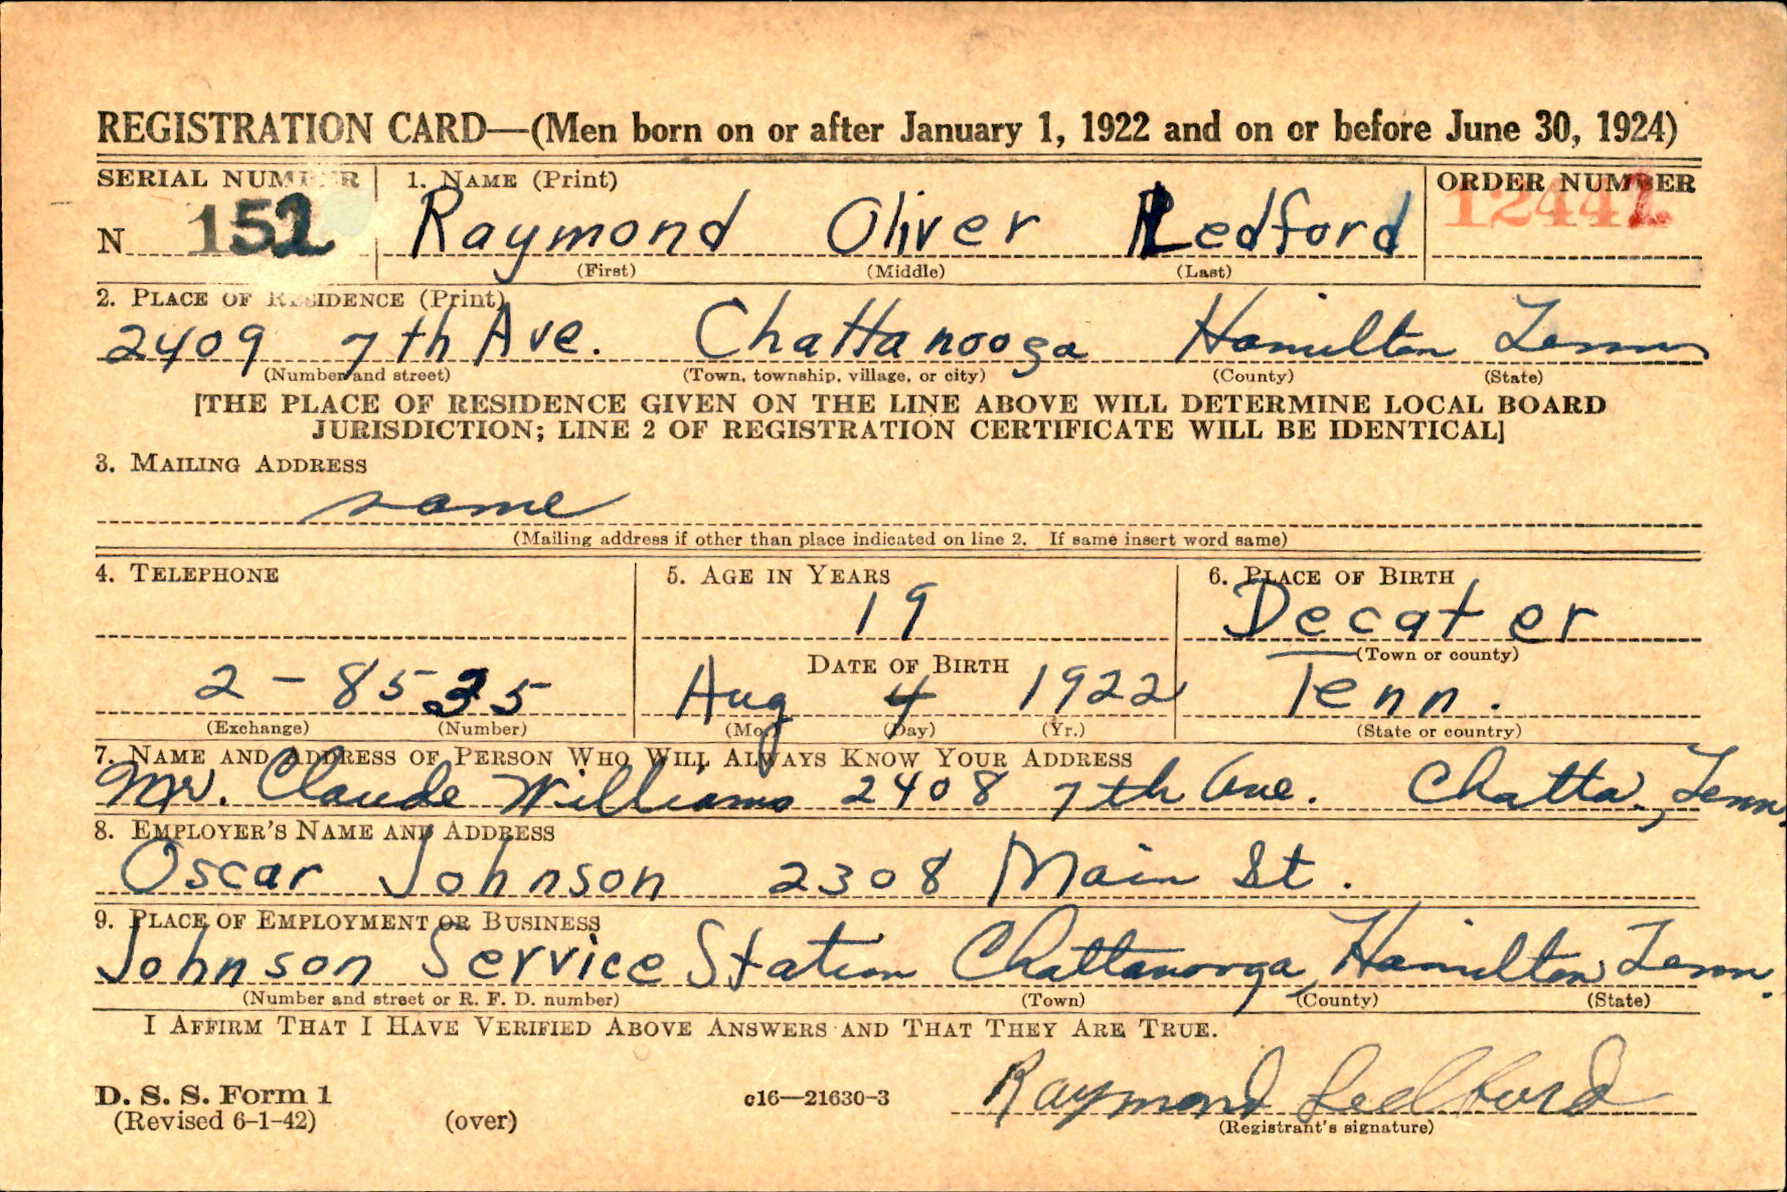 REGISTRATION CARD—(Men born on or after January 1, 1922 and on or before June 30, 1924)
SERIAL NUMBER
1. NAME (Print)
ORDER NUMBER
N 152
Raymond Oliver Ledford
12442
(First) (Middle) (Last)
2. PLACE OF RESIDENCE (Print)
2409 7th Ave. Chattanooga Hamilton Tenn
(Number and street) (Town, township, village, or city) (County) (State)
[THE PLACE OF RESIDENCE GIVEN ON THE LINE ABOVE WILL DETERMINE LOCAL BOARD
JURISDICTION; LINE 2 OF REGISTRATION CERTIFICATE WILL BE IDENTICAL]
3. MAILING ADDRESS
same
(Mailing address if other than place indicated on line 2. If same insert word same)
4. TELEPHONE 5. AGE IN YEARS 6. PLACE OF BIRTH
19 Decater
DATE OF BIRTH (Town or county)
2-8535 Aug 4 1922 Tenn.
(Exchange) (Number) (Mo.) (Day) (Yr.) (State or country)
7. NAME AND ADDRESS OF PERSON WHO WILL ALWAYS KNOW YOUR ADDRESS
Mr. Claude Williams 2408 7th Ave. Chatta., Tenn.
8. EMPLOYER'S NAME AND ADDRESS
Oscar Johnson 2308 Main St.
9. PLACE OF EMPLOYMENT OR BUSINESS
Johnson Service Station Chattanooga, Hamilton Tenn.
(Number and street or R. F. D. number) (Town) (County) (State)
I AFFIRM THAT I HAVE VERIFIED ABOVE ANSWERS AND THAT THEY ARE TRUE.
Raymond Ledford
D. S. S. Form 1 c16—21630-3
(Revised 6-1-42) (over) (Registrant's signature)